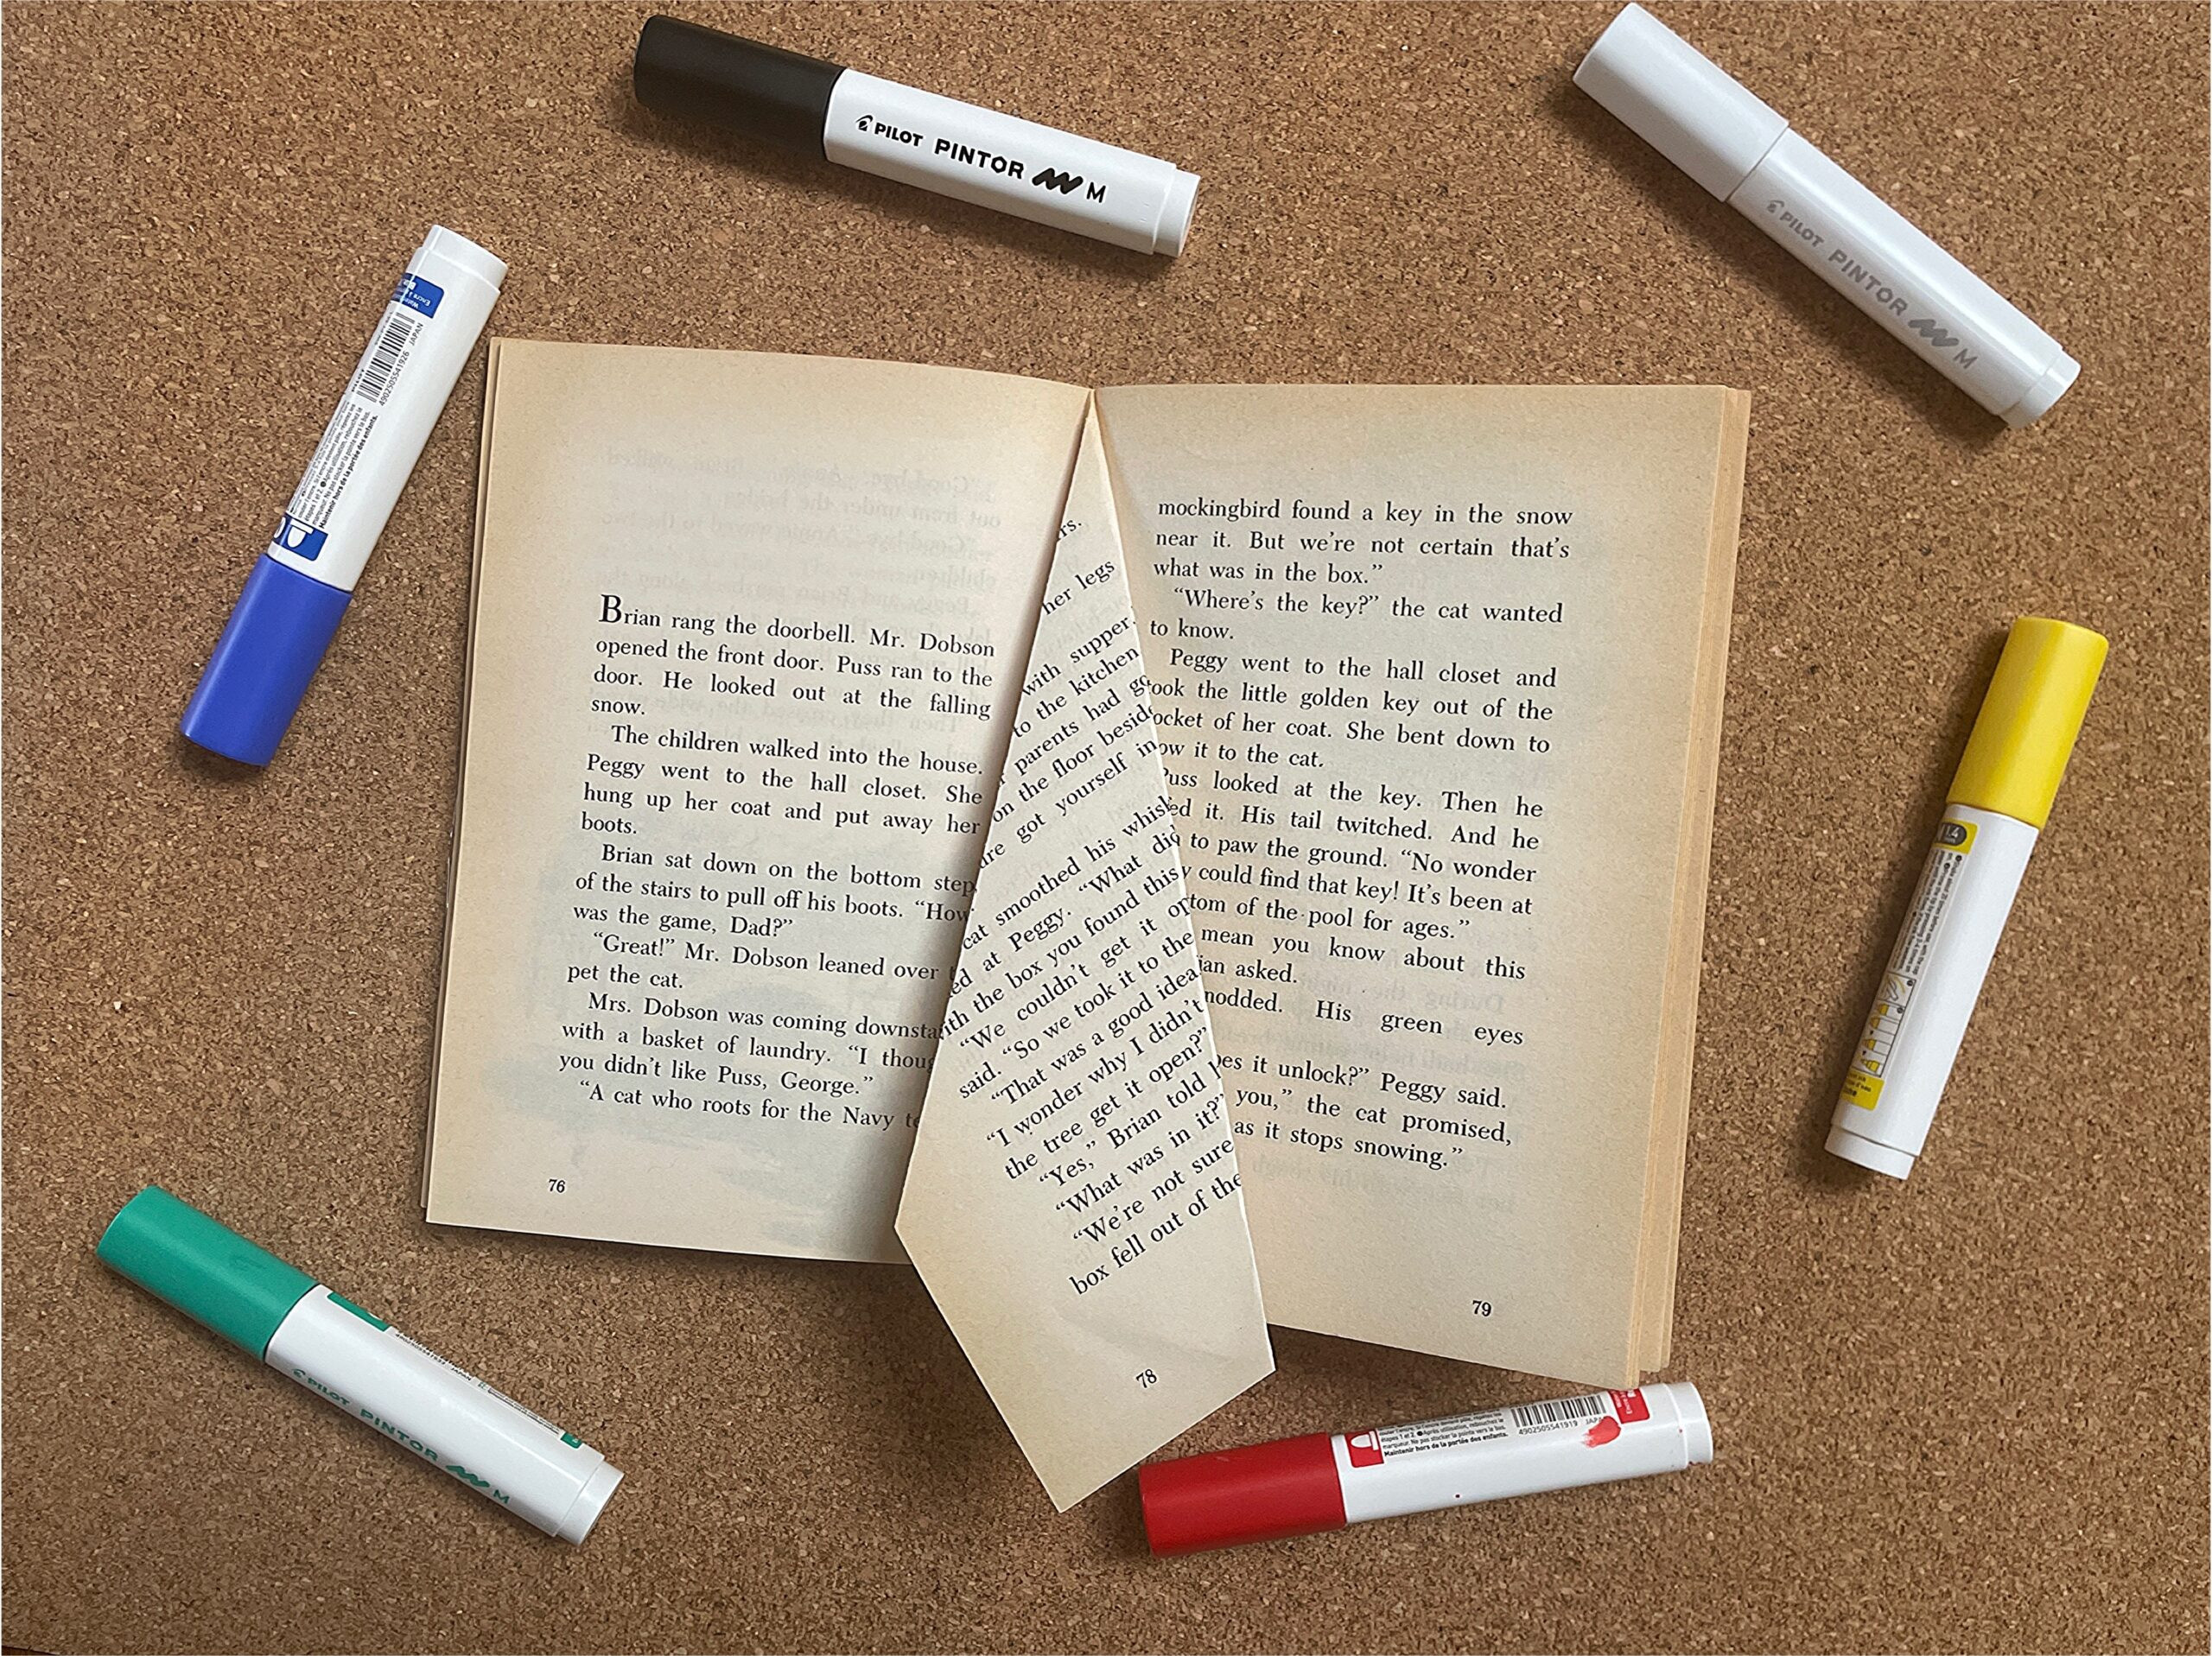 PILOT PINTOR M
PILOT PINTOR M
JAPAN
4902505541926
Maintenir hors de la portée des enfants.
Brian rang the doorbell. Mr. Dobson
opened the front door. Puss ran to the
door. He looked out at the falling
snow.
The children walked into the house.
Peggy went to the hall closet. She
hung up her coat and put away her
boots.
Brian sat down on the bottom step
of the stairs to pull off his boots. “How
was the game, Dad?”
“Great!” Mr. Dobson leaned over
pet the cat.
Mrs. Dobson was coming downsta
with a basket of laundry. “I thoug
you didn’t like Puss, George.”
“A cat who roots for the Navy te
76
rs.
her legs
with supper.
to the kitchen
parents had go
on the floor beside
are got yourself in
cat smoothed his whisk
ed at Peggy. “What did
ith the box you found this
“We couldn’t get it op
said. “So we took it to the
“That was a good idea
“I wonder why I didn’t
the tree get it open?”
“Yes,” Brian told h
“What was in it?”
“We’re not sure
box fell out of the
78
mockingbird found a key in the snow
near it. But we’re not certain that’s
what was in the box.”
“Where’s the key?” the cat wanted
to know.
Peggy went to the hall closet and
ook the little golden key out of the
ocket of her coat. She bent down to
ow it to the cat.
Puss looked at the key. Then he
ed it. His tail twitched. And he
to paw the ground. “No wonder
y could find that key! It’s been at
tom of the pool for ages.”
mean you know about this
ian asked.
nodded. His green eyes
es it unlock?” Peggy said.
you,” the cat promised,
as it stops snowing.”
79
PILOT PINTOR M
4902505541919
Maintenir hors de la portée des enfants.